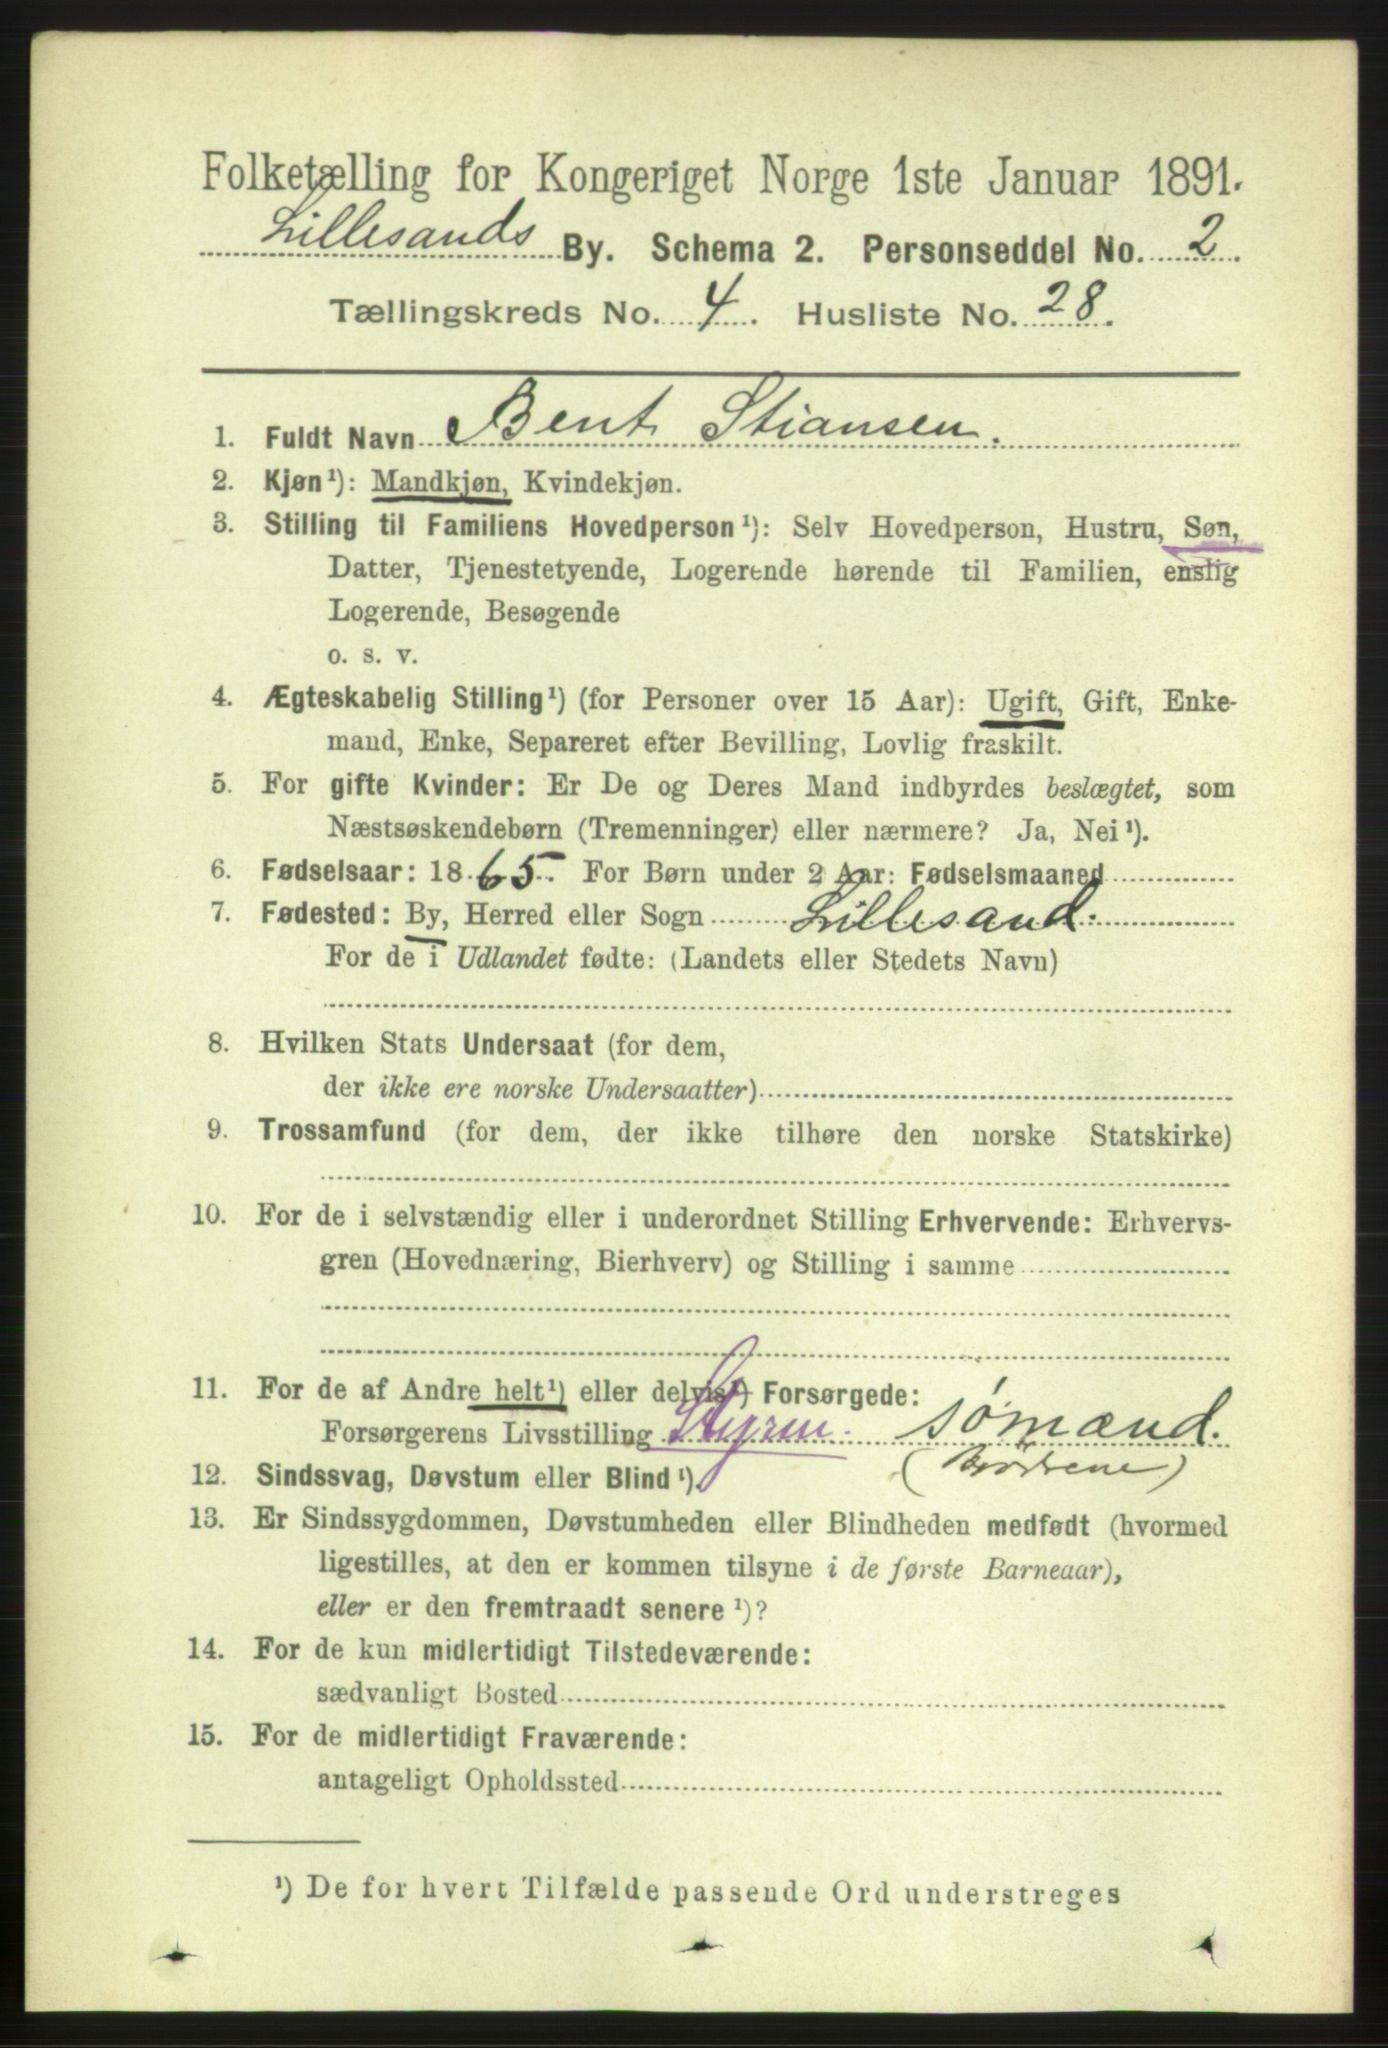 Folketælling for Kongeriget Norge 1ste Januar 1891.
Lillesands By. Schema 2. Personseddel No. 2.
Tællingskreds No. 4. Husliste No. 28.
1. Fuldt Navn Bent Stiansen.
2. Kjøn¹): Mandkjøn, Kvindekjøn.
3. Stilling til Familiens Hovedperson¹): Selv Hovedperson, Hustru, Søn,
Datter, Tjenestetyende, Logerende hørende til Familien, enslig
Logerende, Besøgende
o. s. v.
4. Ægteskabelig Stilling¹) (for Personer over 15 Aar): Ugift, Gift, Enke-
mand, Enke, Separeret efter Bevilling, Lovlig fraskilt.
5. For gifte Kvinder: Er De og Deres Mand indbyrdes beslægtet, som
Næstsøskendebørn (Tremenninger) eller nærmere? Ja, Nei¹).
6. Fødselsaar: 1865. For Børn under 2 Aar: Fødselsmaaned
7. Fødested: By, Herred eller Sogn Lillesand.
For de i Udlandet fødte: (Landets eller Stedets Navn)
8. Hvilken Stats Undersaat (for dem,
der ikke ere norske Undersaatter)
9. Trossamfund (for dem, der ikke tilhøre den norske Statskirke)
10. For de i selvstændig eller i underordnet Stilling Erhvervende: Erhvervs-
gren (Hovednæring, Bierhverv) og Stilling i samme
11. For de af Andre helt¹) eller delvis¹) Forsørgede:
Forsørgerens Livsstilling Styrm. sømænd.
(Brødrene)
12. Sindssvag, Døvstum eller Blind¹).
13. Er Sindssygdommen, Døvstumheden eller Blindheden medfødt (hvormed
ligestilles, at den er kommen tilsyne i de første Barneaar),
eller er den fremtraadt senere¹)?
14. For de kun midlertidigt Tilstedeværende:
sædvanligt Bosted
15. For de midlertidigt Fraværende:
antageligt Opholdssted
¹) De for hvert Tilfælde passende Ord understreges